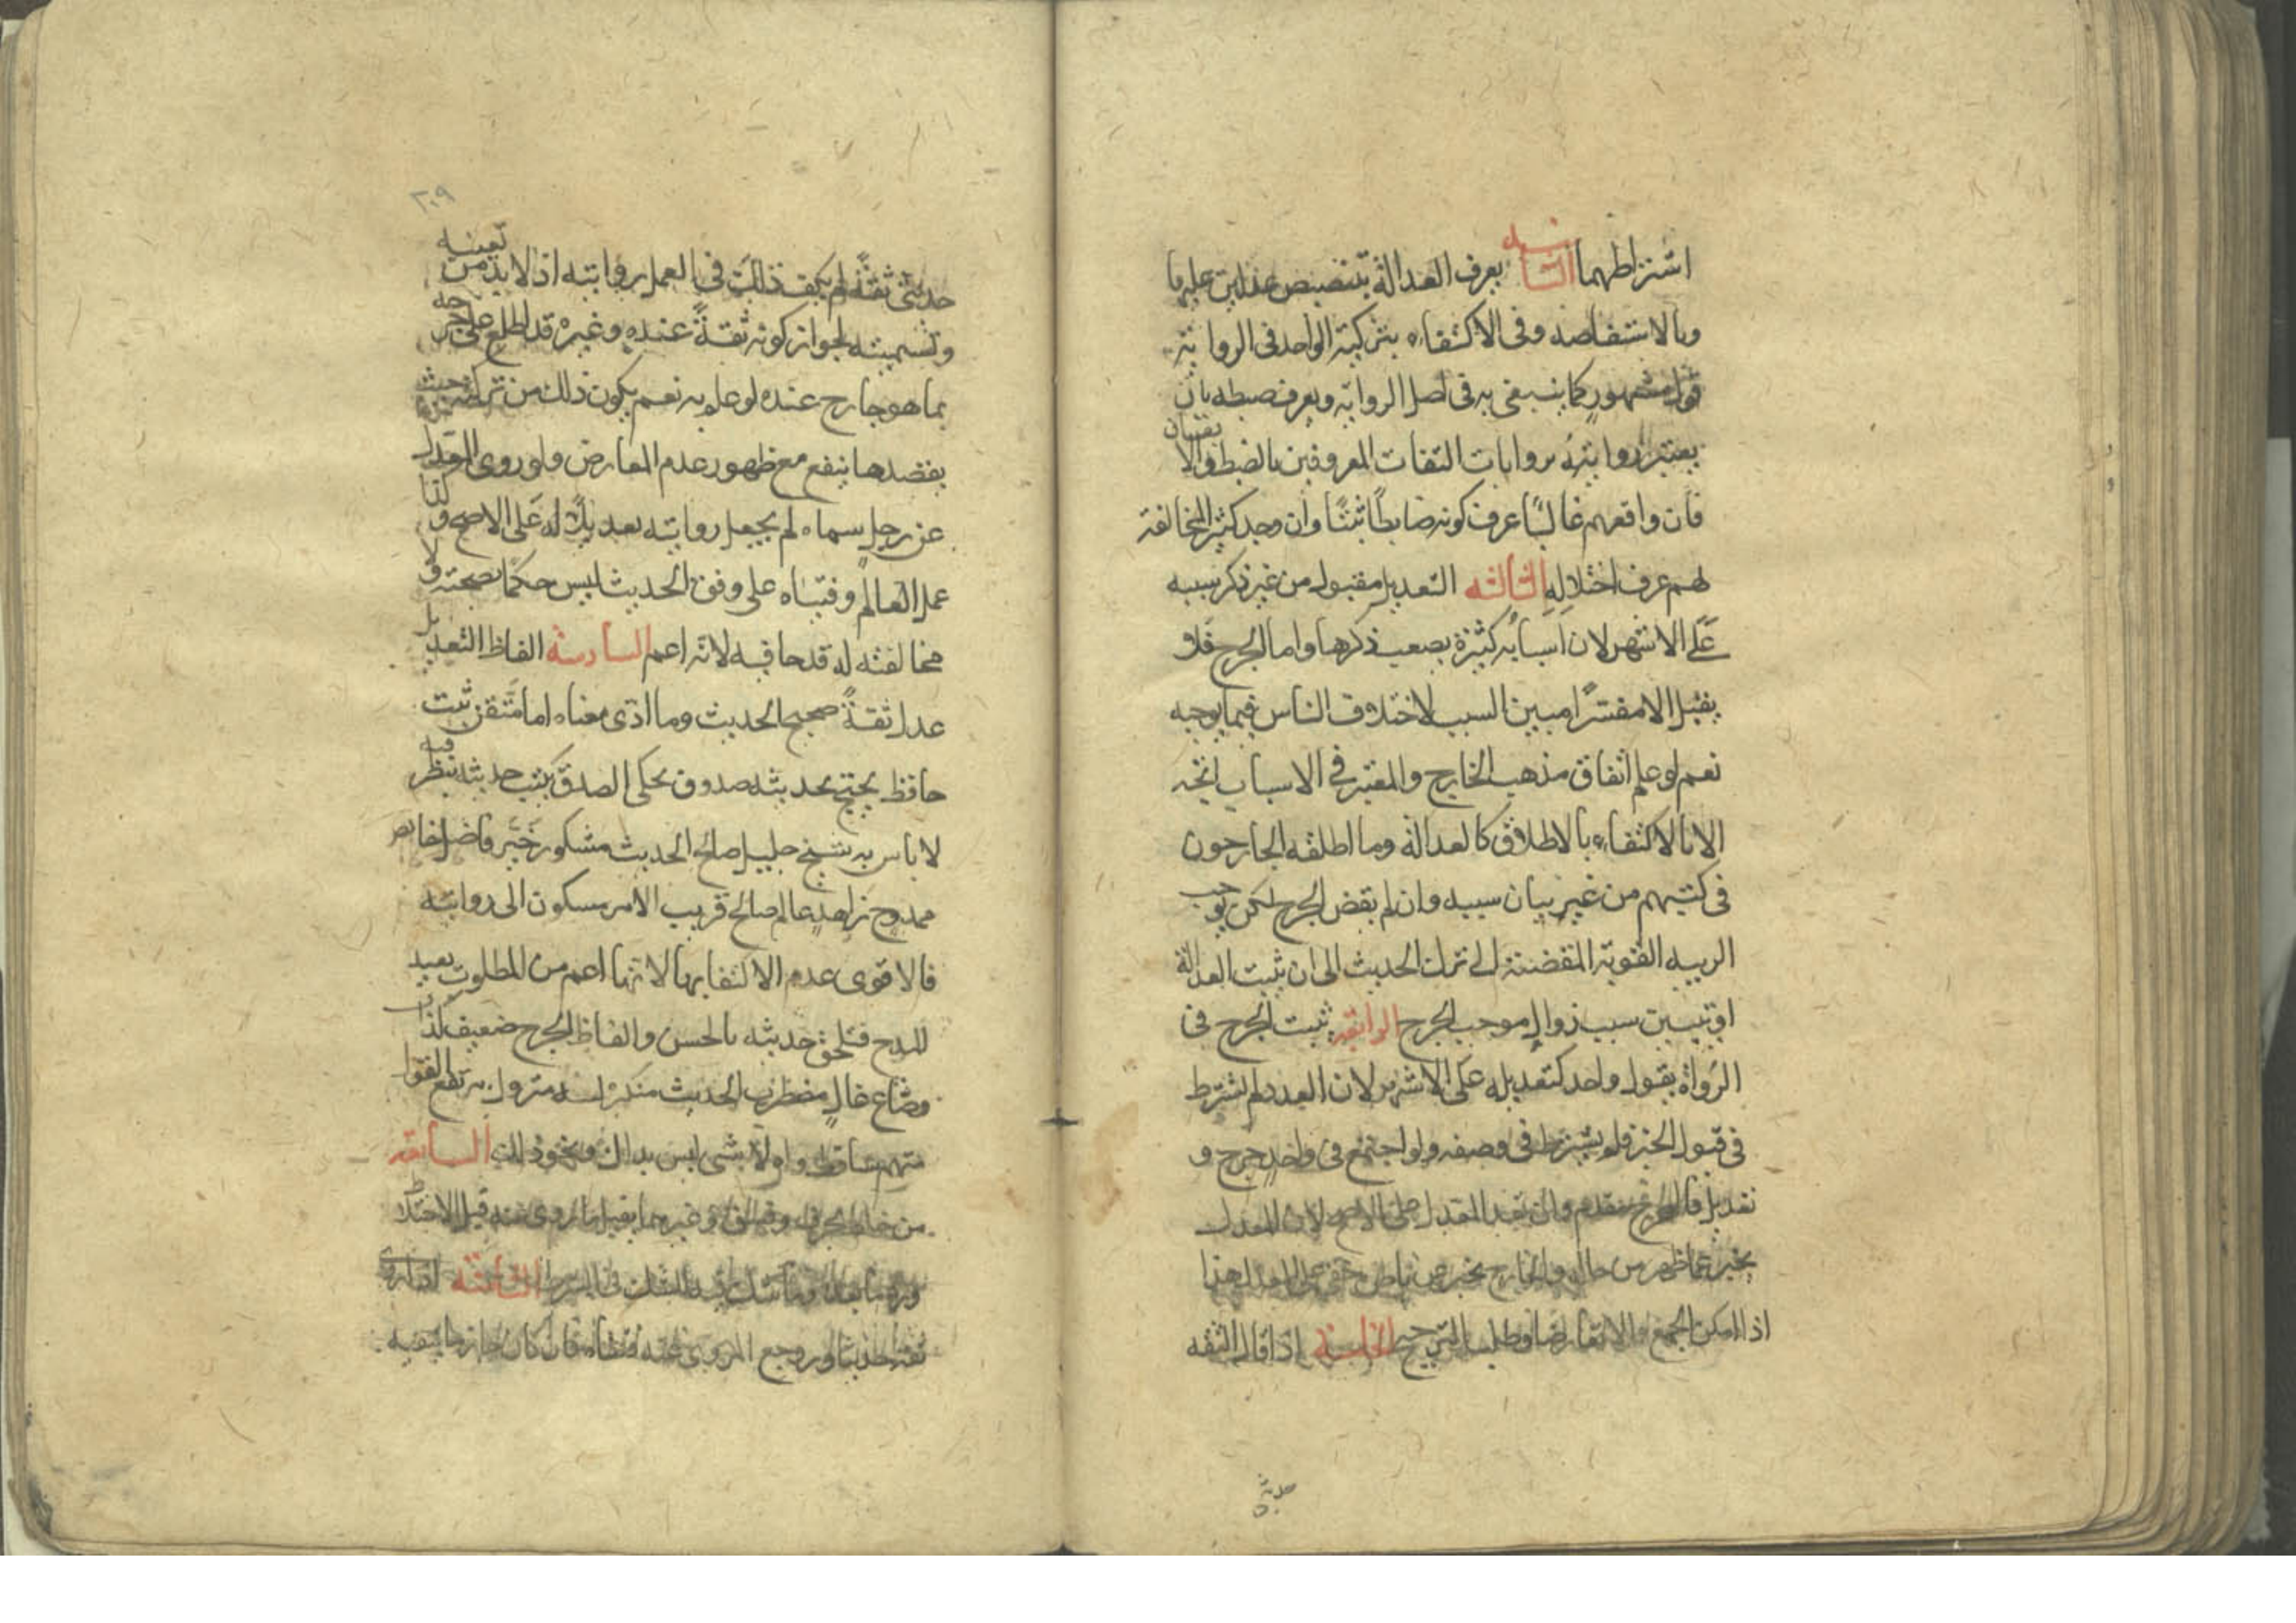 اشتراطهما الثانية يعرف العدالة بتنصيص عدلين عليها
وبالاستفاضه وفى الاكتفاء بتزكية الواحد فى الرواية
قول مشهور كما ينبغى به فى اصل الرواية ويعرف ضبطه بان
يعتبر روايته بروايات الثقات المعروفين بالضبط والاتقان
فان وافقهم غالبًا عرف كونه ضابطًا ثبتًا وان وجد كثير المخالفة
لهم عرف اختلاله الثالثه التعديل مقبول من غير ذكر سببه
على الاشهر لان اسبابه كثيرة يصعب ذكرها واما الجرح فلا
يقبل الا مفسّرًا مبين السبب لاختلاف الناس فيما يوجبه
نعم لو علم اتفاق مذهب الخارج والمعتبر فى الاسباب اتجه
الانا لاكتفاء بالاطلاق كالعدالة وما اطلقه الجارحون
فى كتبهم من غير بيان سببه وان لم يقض الجرح لكن يوجب
الريبه القوية المقضية الى ترك الحديث الى ان يثبت العدالة
او تبيين سبب زوال موجب الجرح الرابعة يثبت الجرح فى
الرواة بقول واحد كتعديله على الاشهر لان العدد لم يشترط
فى قبول الخبز فلم يشترط فى وصفه ولو اجتمع فى واحد جرح و
تعديل فالجرح مقدم وان تعدد المعدل على الاصح لان المعدل
يخبر عما ظهر من حاله والجارح يخبر عن باطن خفى على المعدل هذا
اذا امكن الجمع والا تعارضا وطلب الترجيح الخامسة اذا قال الثقه
حدثنى
٢٠٩
حدثنى ثقةً لم يكف ذلك فى العمل بروايته اذ لا بد من تعيينه
وتسميته لجواز كونه ثقةً عنده وغيره قد اطلع على جرحه
بما هو جارح عنده لو علم به نعم يكون ذلك من تزكية حيث
يقصدها ينفع مع ظهور عدم المعارض ولو روى العدل
عن رجل سماه لم يجعل روايته تعديلًا له على الاصح وكذا
عمل العالم وفتياه على وفق الحديث ليس حكمًا بصحته ولا
مخالفته له قدحا فيه لانه اعم السادسة الفاظ التعديل
عدل ثقةً صحيح الحديث وما ادّى معناه اما متقن ثبت
حافظ يحتج بحديثه صدوق يحكى الصدق يكتب حديثه ينظر فيه
لا باس به شيخ جليل صالح الحديث مشكور خير فاضل خاص
ممدوح زاهد عالم صالح قريب الامر مسكون الى روايته
فالاقوى عدم الاكتفا بها لانها اعم من المطلوب يفيد
المدح فيلحق حديثه بالحسن والفاظ الجرح ضعيف كذاب
وضاع غال مضطرب الحديث منكره متروك مرتفع القول
متهم ساقط واه لا شى ليس بذلك ونحو ذلك السابعة
من خلط بخرف وفسق وغيرهما يقبل ما روى عنه قبل الاختلاط
ويرد ما بعده وما شك فيه للشك فى الشرط الثامنة اذا روى
ثقة حديثا ورجع المروى عنه فنفاه فان كان جازما بنفيه